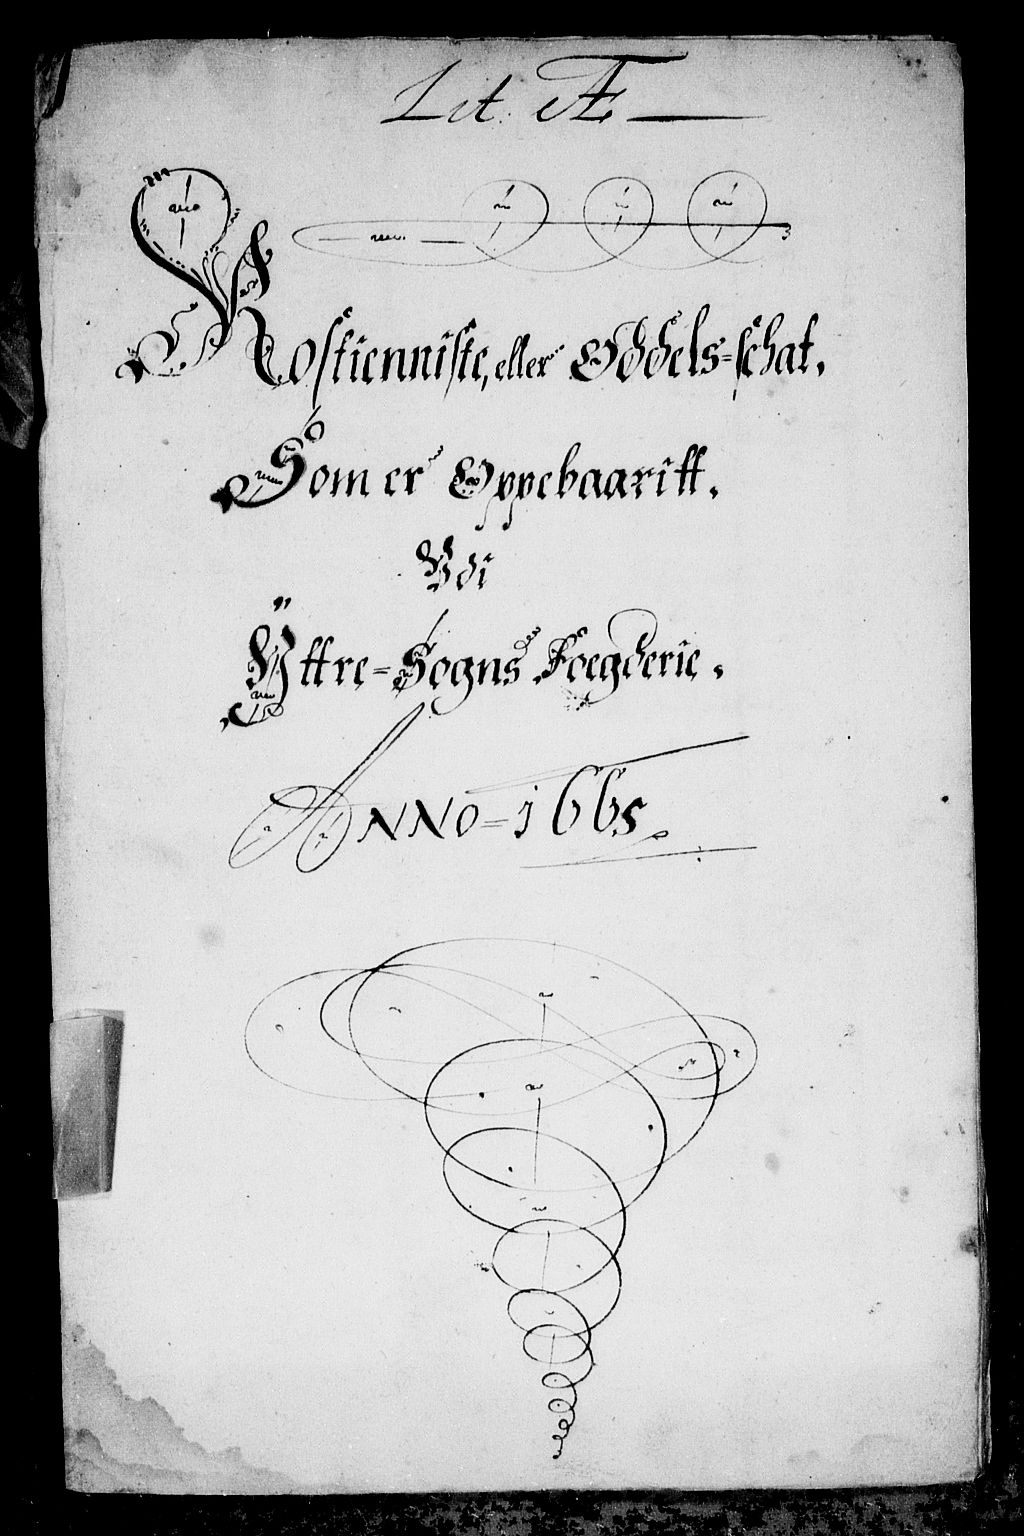 Lit. Æ
Rostienniste, eller Oddels-schat.
Som er Oppebaaritt.
Udi
Ÿttre-Sogns Foegderie.
ANNO-1665.